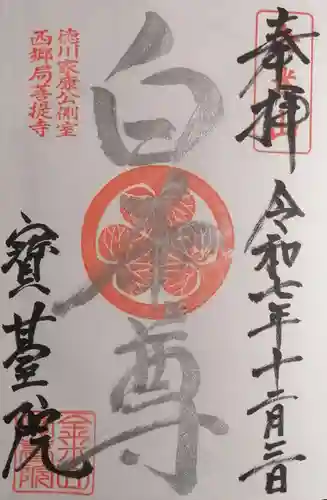 奉拝
令和七年十二月三日
白本尊
徳川家康公側室
西郷局菩提寺
寶臺院
金米山